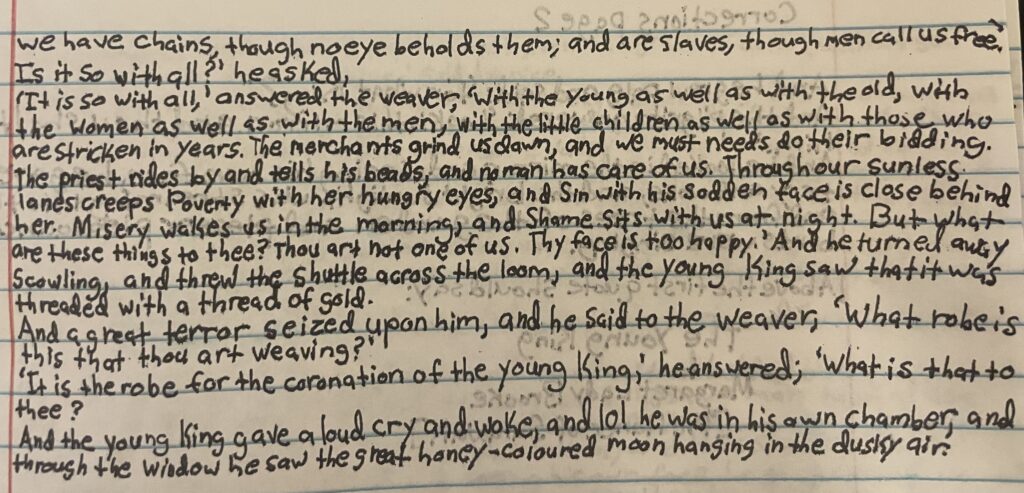 we have chains, though no eye beholds them; and are slaves, though men call us free.'
Is it so with all?' he asked,
'It is so with all,' answered the weaver, 'with the young as well as with the old, with
the women as well as with the men, with the little children as well as with those who
are stricken in years. The merchants grind us down, and we must needs do their bidding.
The priest rides by and tells his beads, and no man has care of us. Through our sunless
lanes creeps Poverty with her hungry eyes, and Sin with his sodden face is close behind
her. Misery wakes us in the morning, and Shame sits with us at night. But what
are these things to thee? Thou art not one of us. Thy face is too happy.' And he turned away
Scowling, and threw the shuttle across the loom, and the young King saw that it was
threaded with a thread of gold.
And a great terror seized upon him, and he said to the weaver, 'What robe is
this that thou art weaving?'
'It is the robe for the coronation of the young King,' he answered; 'What is that to
thee?
And the young King gave a loud cry and woke, and lo! he was in his own chamber, and
through the window he saw the great honey-coloured moon hanging in the dusky air.
Corrections Page 2
Above the first quote should say:
The Young King